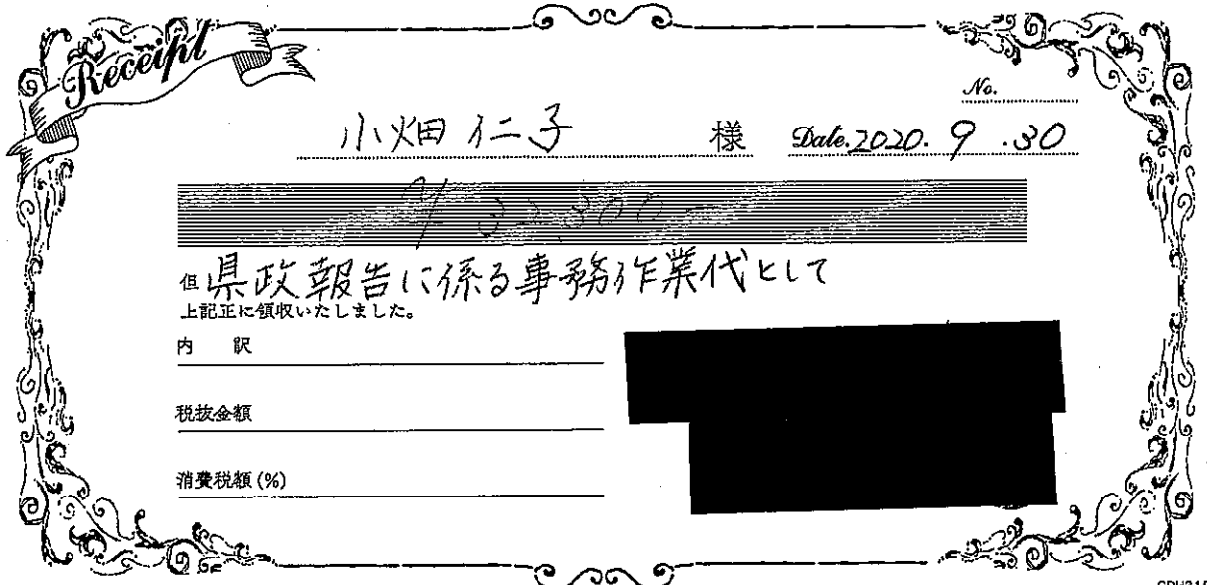 Receipt
No.
小畑仁子 様 Date. 2020. 9 .30
¥32,300-
但 県政報告に係る事務作業代として
上記正に領収いたしました。
内 訳
税抜金額
消費税額(%)